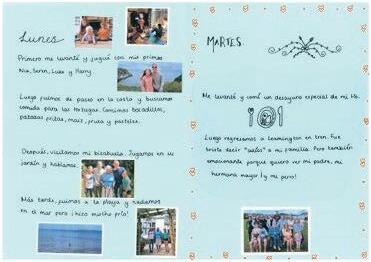 Lunes
Primero me levanté y jugué con mis primos
Nia, Seren, Luke y Harry.
Luego fuimos de paseo en la costa y buscamos
comida para las tortugas. Comimos bocadillos,
patatas fritas, maíz, fruta y pasteles.
Después, visitamos mi bisabuela. Jugamos en su
jardín y hablamos.
Más tarde, fuimos a la playa y nadamos
en el mar pero ¡hizo mucho frío!
MARTES
Me levanté y comí un desayuno especial de mi tía.
Luego regresamos a Leamington en tren. Fue
triste decir "adiós" a mi familia. Pero también
emocionante porque quiero ver mi padre, mi
hermana mayor ¡y mi perro!